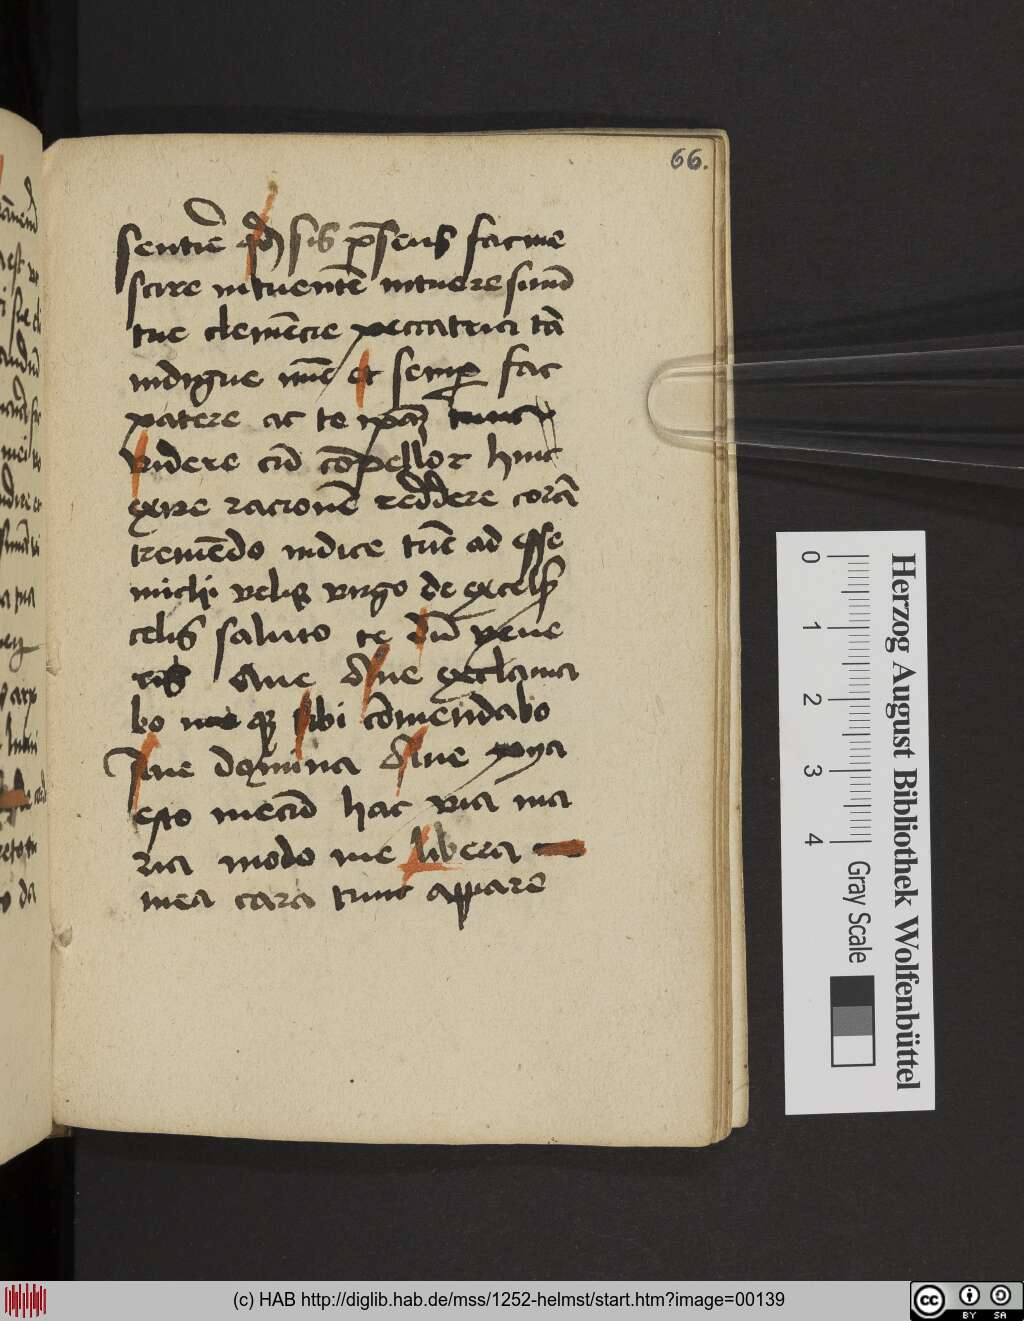 66.
sentire qd sis p̄sens fac me
scire intuentē intuere simul
tue clemēcie peccatrici tā
indigne nūc et semp fac
patere ac te ip̄am tunc
videre cū cōpellor hinc
exire racionē reddere corā
tremēdo iudice tūc ad esse
michi velis virgo de excelsis
celis saluto te dum vene
ris Aue Aue exclama
bo me q̄ tibi cōmendabo
Aue domina Aue pya
esto mecū hac via ma
ria modo me libera
mea cara tunc appare
Herzog August Bibliothek Wolfenbüttel
0 1 2 3 4 Gray Scale
(c) HAB http://diglib.hab.de/mss/1252-helmst/start.htm?image=00139
cc BY SA